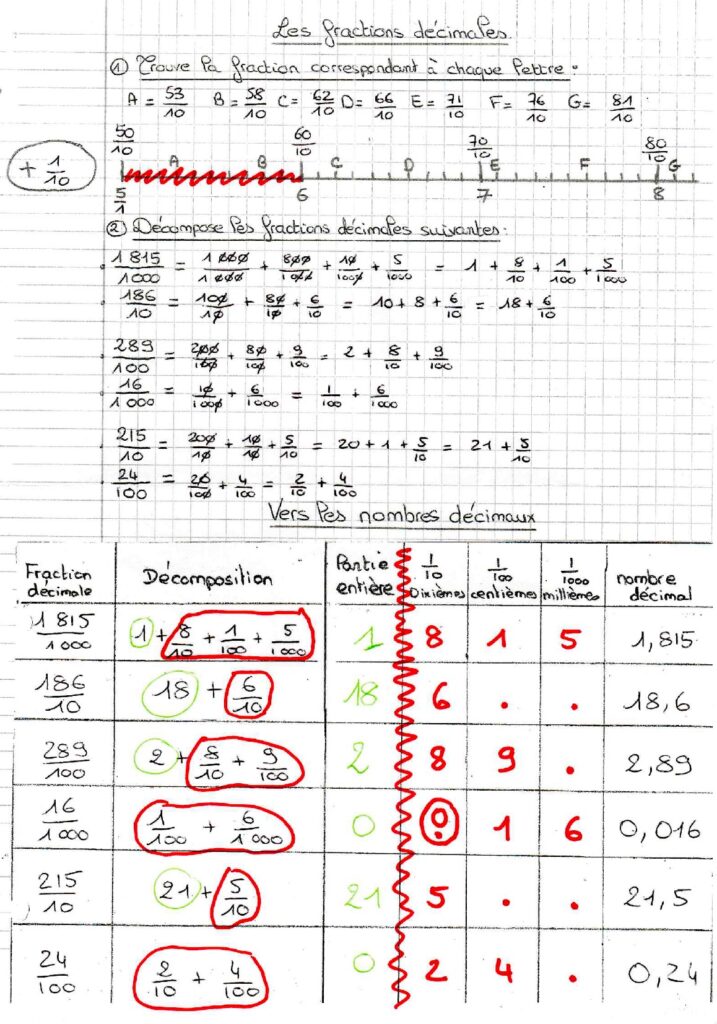 Les fractions décimales.
① Trouve la fraction correspondant à chaque lettre :
A = 53/10 B = 58/10 C = 62/10 D = 66/10 E = 71/10 F = 76/10 G = 81/10
50/10 60/10 70/10 80/10
+ 1/10 A B C D E F G
5/1 6 7 8
② Décompose les fractions décimales suivantes :
1 815/1000 = 1 000/1 000 + 800/1000 + 10/1000 + 5/1000 = 1 + 8/10 + 1/100 + 5/1000
186/10 = 100/10 + 80/10 + 6/10 = 10 + 8 + 6/10 = 18 + 6/10
289/100 = 200/100 + 80/100 + 9/100 = 2 + 8/10 + 9/100
16/1 000 = 10/1000 + 6/1000 = 1/100 + 6/1000
215/10 = 200/10 + 10/10 + 5/10 = 20 + 1 + 5/10 = 21 + 5/10
24/100 = 20/100 + 4/100 = 2/10 + 4/100
Vers les nombres décimaux
Fraction décimale Décomposition Partie entière 1/10 Dixièmes 1/100 centièmes 1/1000 millièmes nombre décimal
1 815/1000 1 + 8/10 + 1/100 + 5/1000 1 8 1 5 1,815
186/10 18 + 6/10 18 6 . . 18,6
289/100 2 + 8/10 + 9/100 2 8 9 . 2,89
16/1000 1/100 + 6/1000 0 0 1 6 0,016
215/10 21 + 5/10 21 5 . . 21,5
24/100 2/10 + 4/100 0 2 4 . 0,24